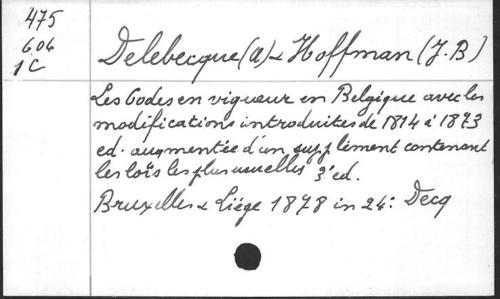 475
606
1C
Delebecque (A) & Hoffman (J.B)
Les Codes en vigueur en Belgique avec les
modifications introduites de 1814 à 1873
ed. augmentée d'un supplément contenant
les loïs les plus usuelles 3e ed.
Bruxelles & Liége 1878 in 24: Decq